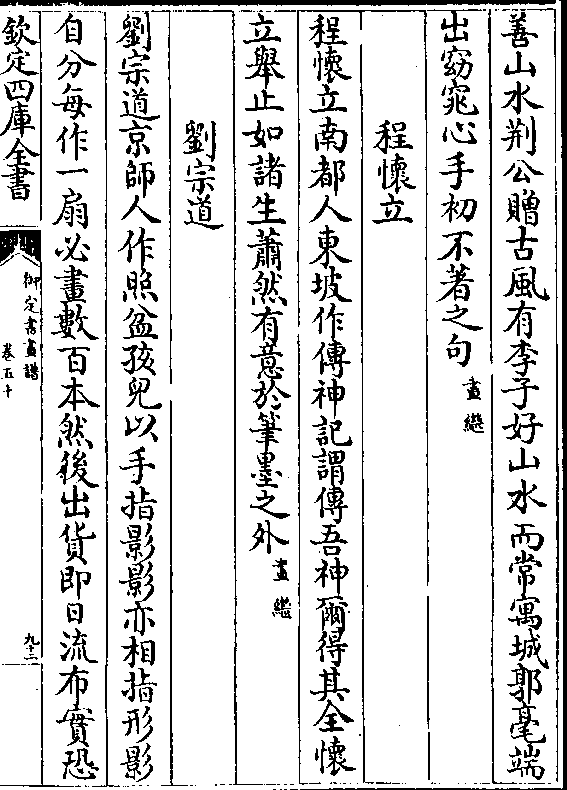 善山水荆公贈古風有李子好山水而常寓城郭毫端
出窈窕心手初不著之句畫繼
程懷立
程懷立南都人東坡作傳神記謂傳吾神爾得其全懷
立舉止如諸生蕭然有意於筆墨之外畫繼
劉宗道
劉宗道京師人作照盆孩兒以手指影影亦相指形影
自分每作一扇必畫數百本然後出貨即日流布實恐
欽定四庫全書
御定書畫譜
卷五十
九十二